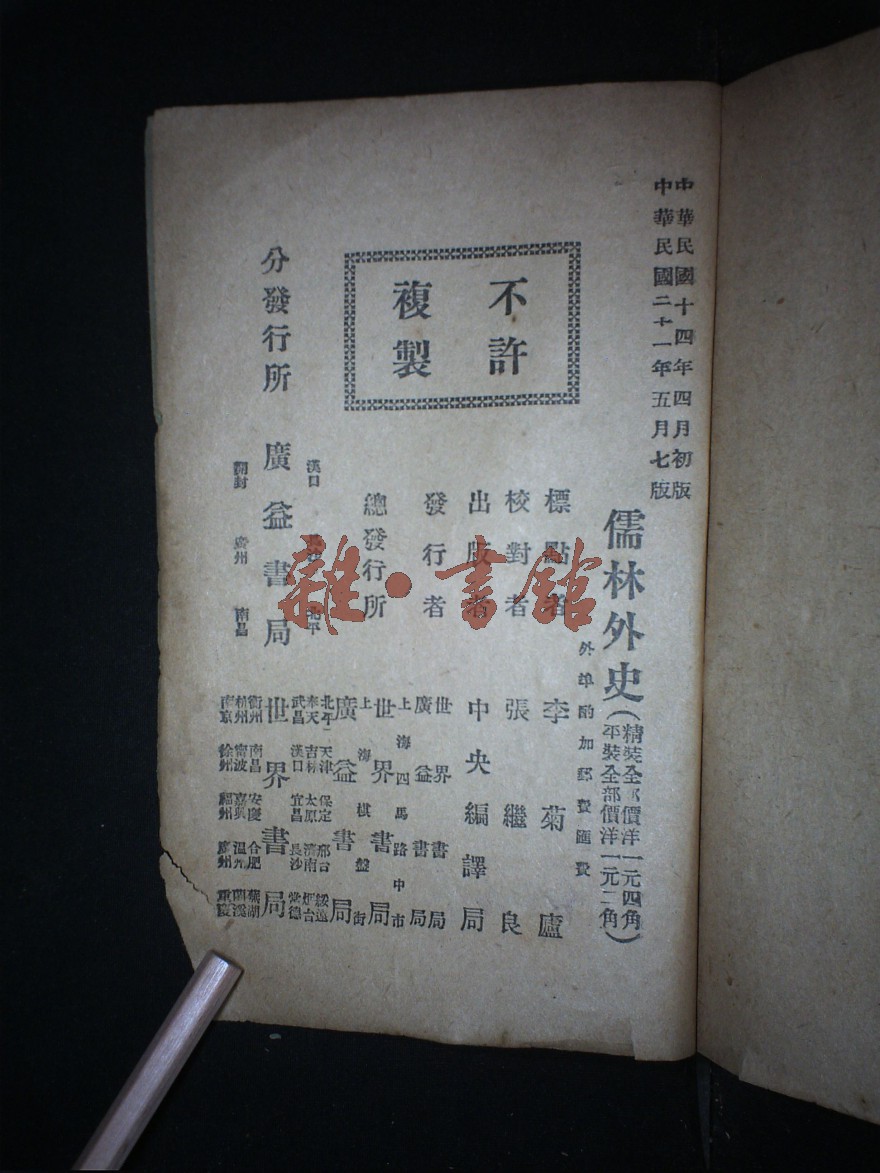 中華民國十四年四月初版
中華民國二十一年五月七版
儒林外史
(精裝全部價洋一元四角
平裝全部價洋一元二角)
外埠酌加郵費匯費
不許
複製
標點者 李菊廬
校對者 張繼良
出版者 中央編譯局
發行者 世界書局
廣益書局
總發行所
上海四馬路中市
世界書局
上海棋盤街
廣益書局
分發行所
北平 天津 保定 邢台 綏遠
奉天 吉林 太原 濟南 烟台
武昌 漢口 宜昌 長沙 常德
世界書局
衢州 南昌 安慶 合肥 蕪湖
杭州 甯波 嘉興 溫州 蘭溪
南京 徐州 福州 廣州 重慶
漢口 北平
廣益書局
開封 廣州 南昌
雜·書館